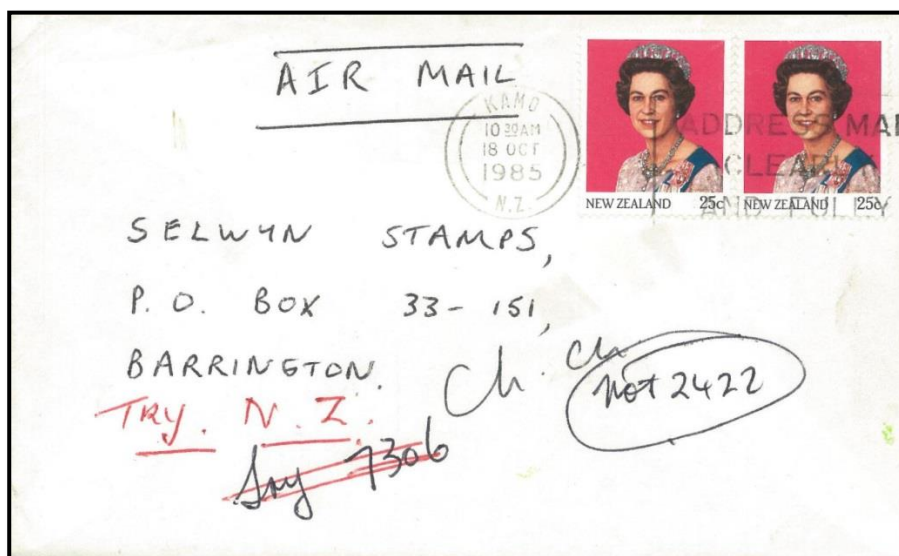 AIR MAIL
KAMO
10 30 AM
18 OCT
1985
N.Z.
ADDRESS MAI
CLEARLY
AND FULLY
NEW ZEALAND 25c
NEW ZEALAND 25c
SELWYN STAMPS,
P. O. BOX 33-151,
BARRINGTON.
Ch. Ch
not 2422
TRY. N. Z.
Try 7306